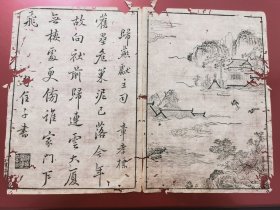 歸燕獻主司 章孝標
舊壘危巢泥已落今年
故向社前歸連雲大厦
無棲處更傍誰家門戶
飛 子書